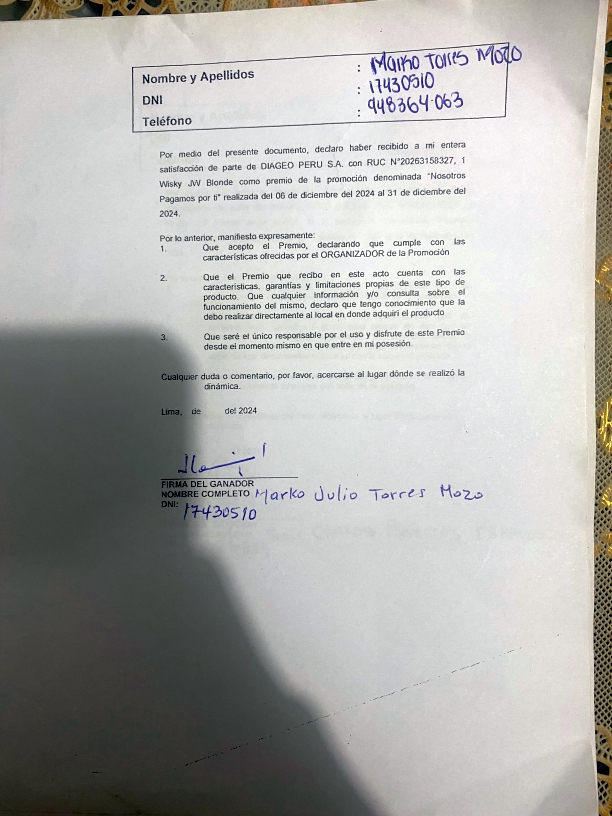 Nombre y Apellidos : Marko Torres Mozo
DNI : 17430510
Teléfono : 948364063
Por medio del presente documento, declaro haber recibido a mi entera
satisfacción de parte de DIAGEO PERU S.A. con RUC N°20263158327, 1
Wisky JW Blonde como premio de la promoción denominada "Nosotros
Pagamos por ti" realizada del 06 de diciembre del 2024 al 31 de diciembre del
2024.
Por lo anterior, manifiesto expresamente:
1. Que acepto el Premio, declarando que cumple con las
características ofrecidas por el ORGANIZADOR de la Promoción
2. Que el Premio que recibo en este acto cuenta con las
características, garantías y limitaciones propias de este tipo de
producto. Que cualquier información y/o consulta sobre el
funcionamiento del mismo, declaro que tengo conocimiento que la
debo realizar directamente al local en donde adquirí el producto
3. Que seré el único responsable por el uso y disfrute de este Premio
desde el momento mismo en que entre en mi posesión.
Cualquier duda o comentario, por favor, acercarse al lugar dónde se realizó la
dinámica.
Lima, de del 2024
FIRMA DEL GANADOR
NOMBRE COMPLETO Marko Julio Torres Mozo
DNI: 17430510